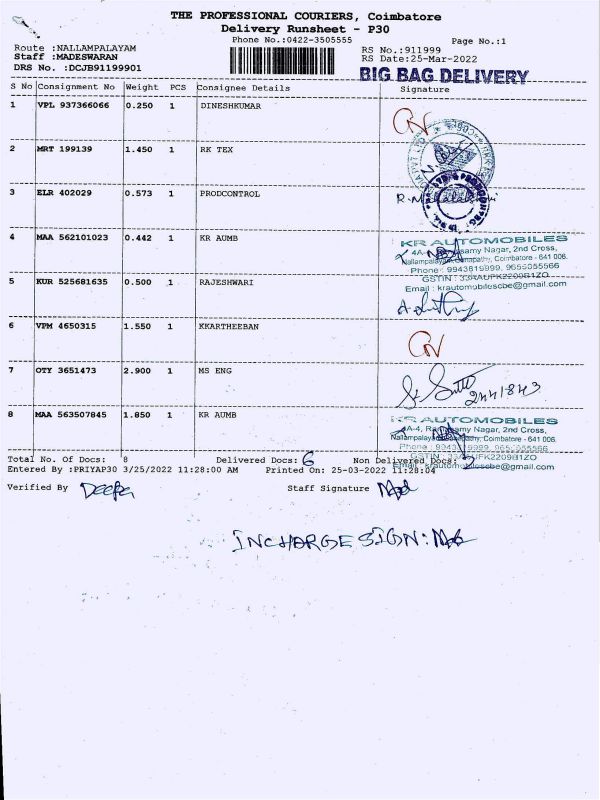 THE PROFESSIONAL COURIERS, Coimbatore
Delivery Runsheet - P30
Phone No.:0422-3505555
Page No.:1
Route :NALLAMPALAYAM
RS No.:911999
Staff :MADESWARAN
RS Date:25-Mar-2022
DRS No. :DCJB91199901
BIG BAG DELIVERY
S No Consignment No Weight PCS Consignee Details Signature
1 VPL 937366066 0.250 1 DINESHKUMAR
2 MRT 199139 1.450 1 RK TEX
3 ELR 402029 0.573 1 PRODCONTROL
4 MAA 562101023 0.442 1 KR AUMB
KR AUTOMOBILES
Nagar, 2nd Cross,
Coimbatore - 641 006.
Phone : 9943819999, 9655055566
Email : krautomobilescbe@gmail.com
5 KUR 525681635 0.500 1 RAJESHWARI
6 VPM 4650315 1.550 1 KKARTHEEBAN
7 OTY 3651473 2.900 1 MS ENG
8 MAA 563507845 1.850 1 KR AUMB
KR AUTOMOBILES
Nagar, 2nd Cross,
Coimbatore - 641 006
Total No. Of Docs: 8 Delivered Docs: 6 Non Delivered Docs: 2
Entered By :PRIYAP30 3/25/2022 11:28:00 AM Printed On: 25-03-2022 11:28:04
Verified By Deepa Staff Signature
INCHARGE SIGN: